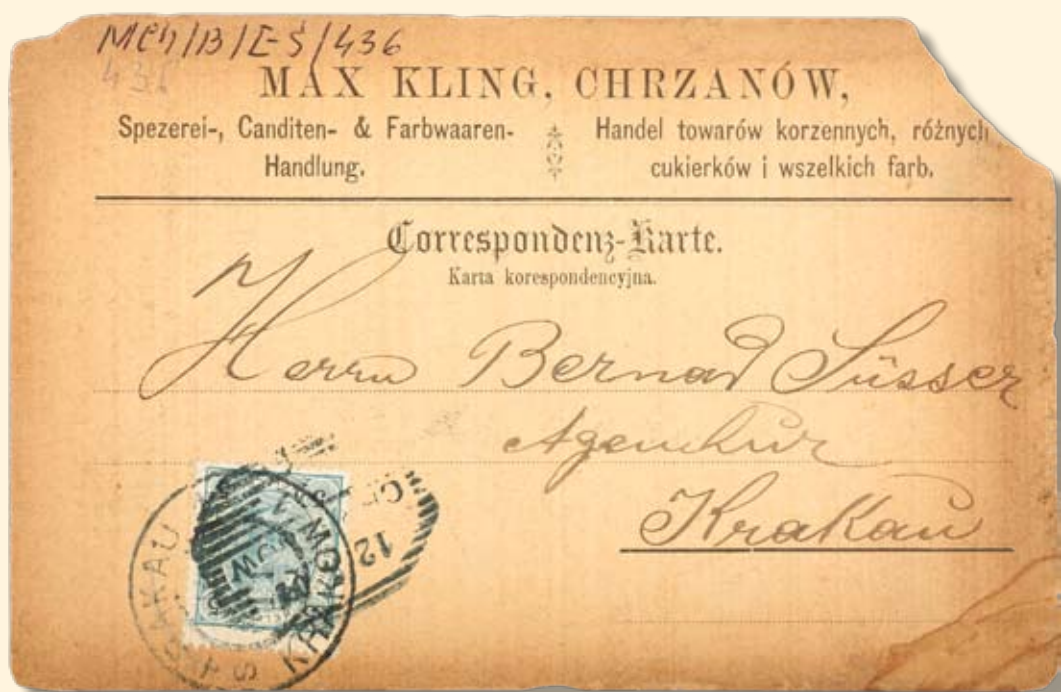 MCh/B/E-Ś/436
436
MAX KLING, CHRZANÓW,
Spezerei-, Canditen- & Farbwaaren-
Handlung.
Handel towarów korzennych, różnych
cukierków i wszelkich farb.
Correspondenz-Karte.
Karta korespondencyjna.
Herrn Bernad Süsser
Agentur
Krakau
KRAKAU
KRAKOW
12